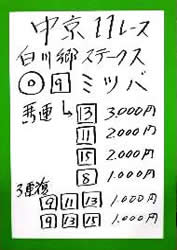 中京11レース
白川郷ステークス
◎ 9 ミツバ
馬連 → 13 3,000円
11 2,000円
15 2,000円
8 1,000円
3連複
9 11 13 1,000円
9 13 15 1,000円